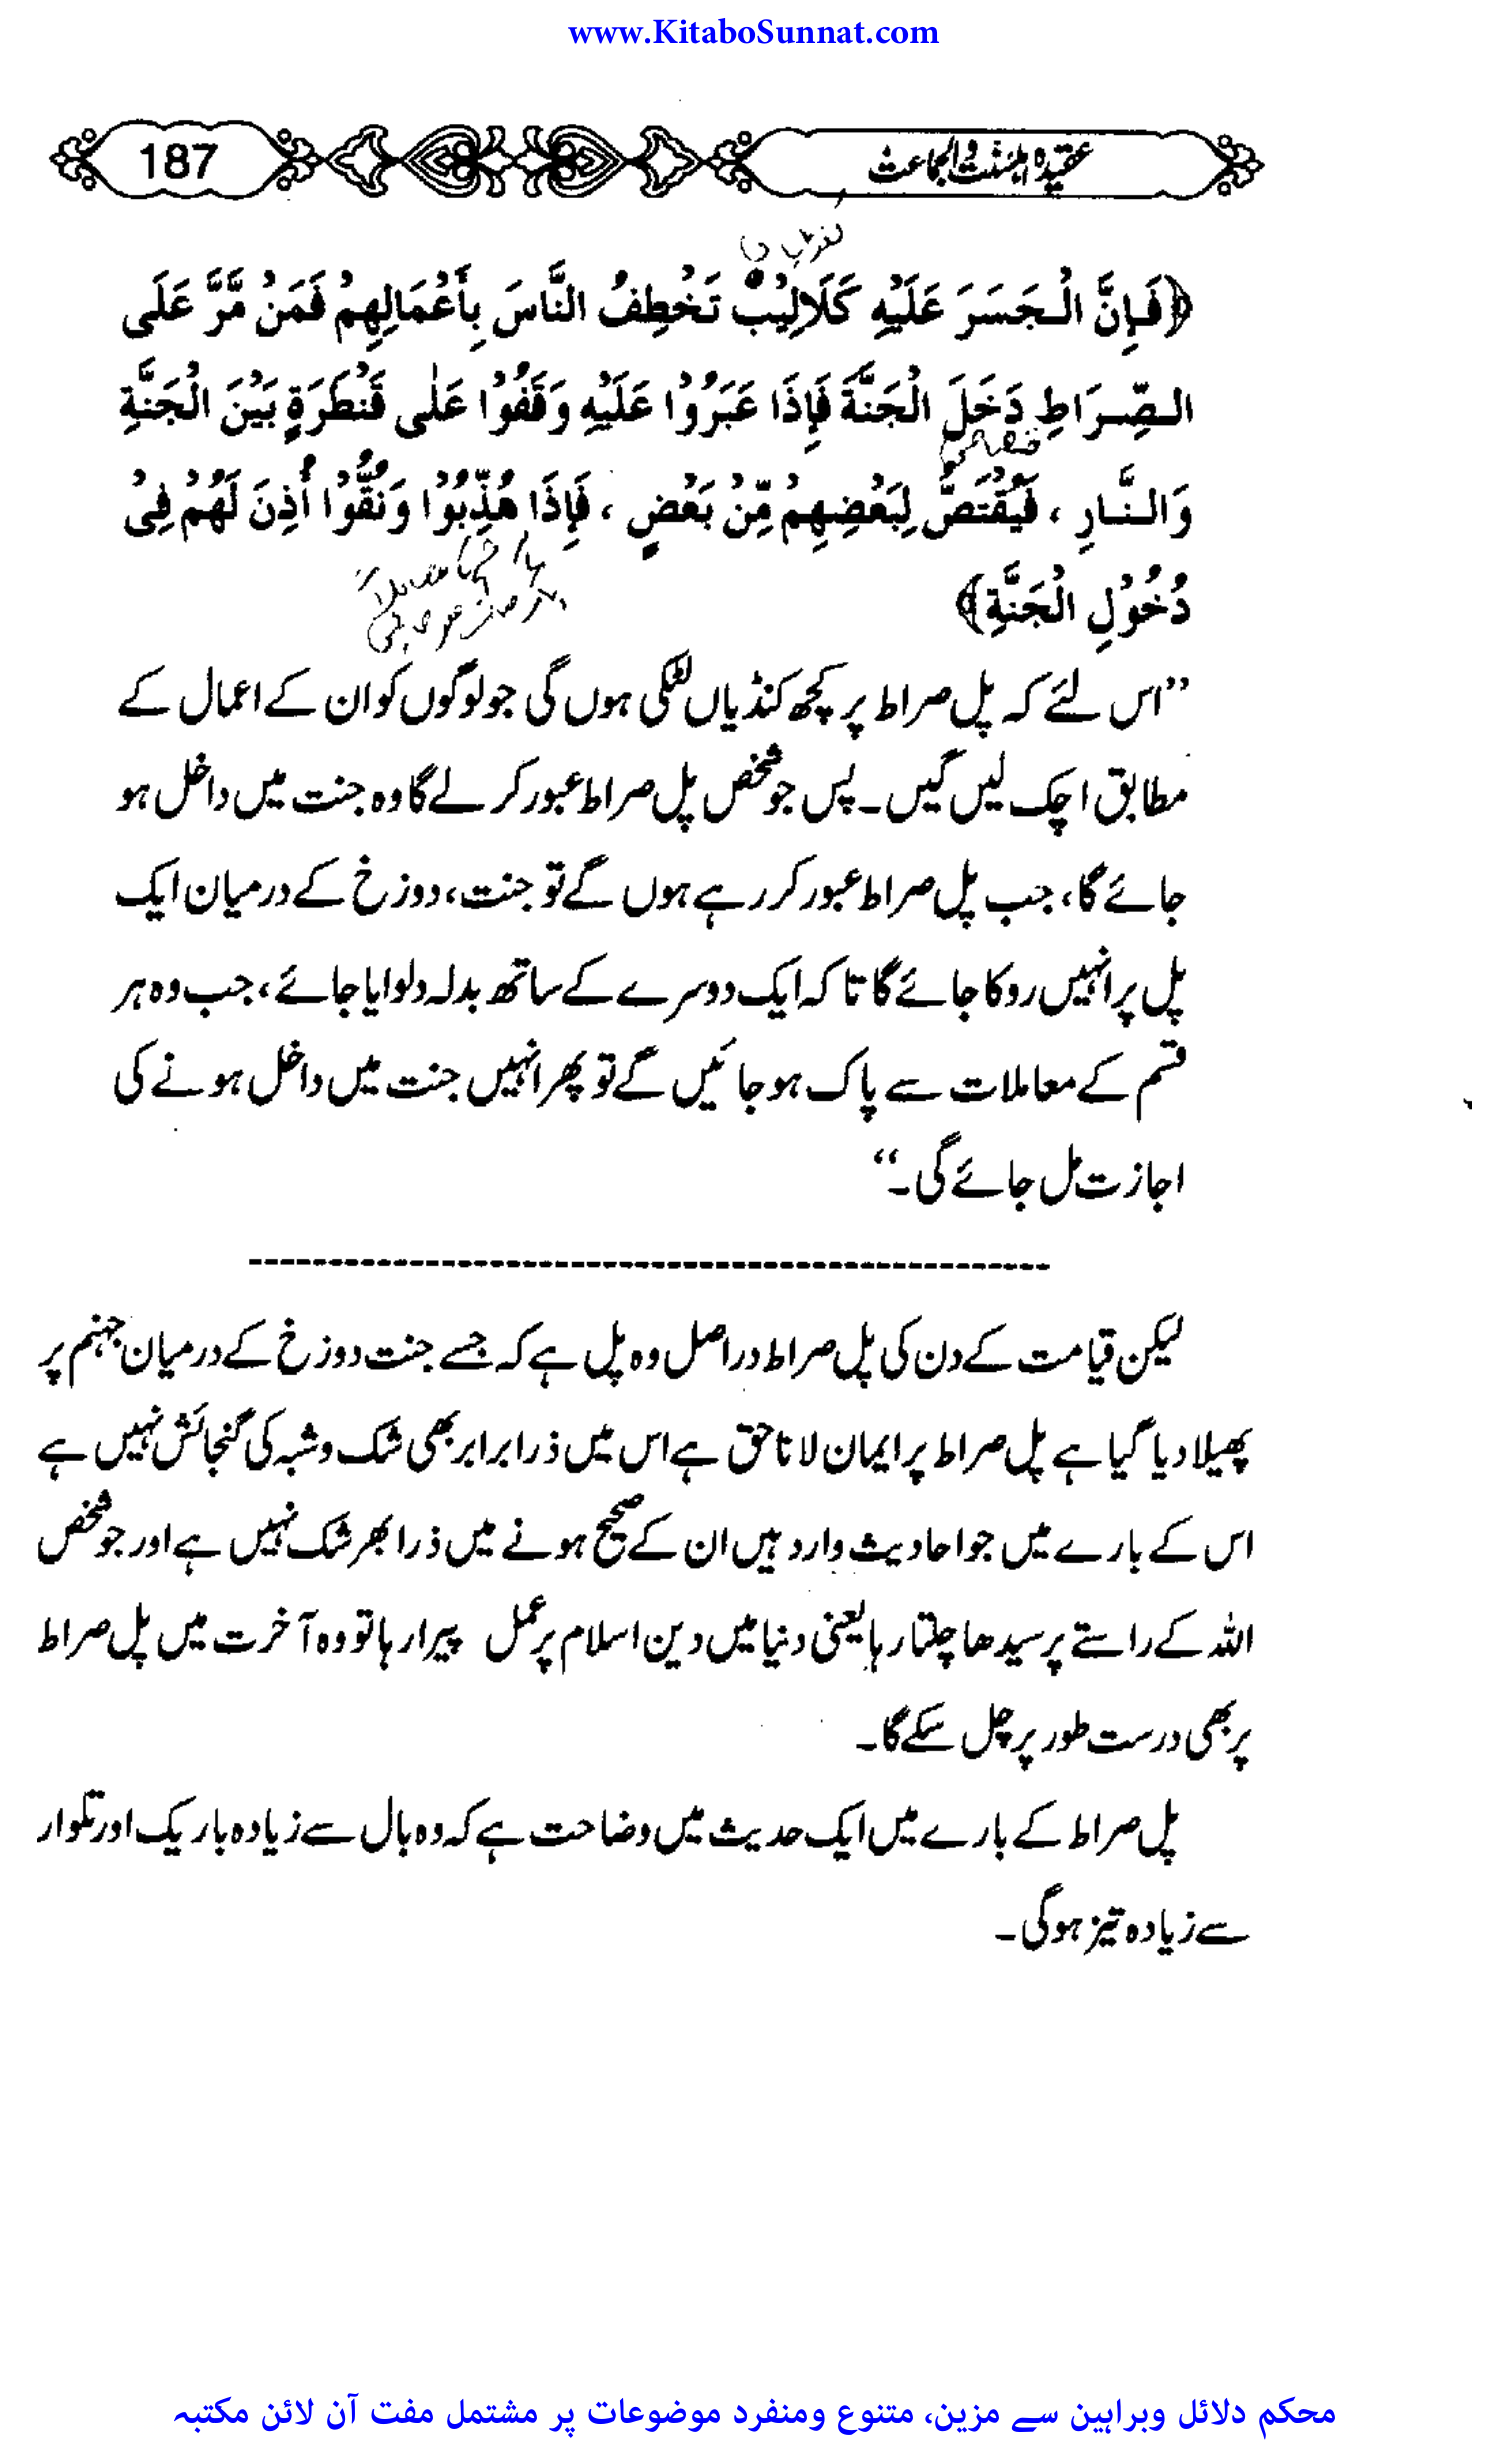 www.KitaboSunnat.com
عقیدہ اہلسنّت والجماعت
187
﴿فَإِنَّ الْجَسَرَ عَلَيْهِ كَلَالِيْبٌ تَخْطِفُ النَّاسَ بِأَعْمَالِهِمْ فَمَنْ مَّرَّ عَلَى
الصِّرَاطِ دَخَلَ الْجَنَّةَ فَإِذَا عَبَرُوْا عَلَيْهِ وَقَفُوْا عَلٰى قَنْطَرَةٍ بَيْنَ الْجَنَّةِ
وَالنَّارِ ، فَيُقْتَصُّ لِبَعْضِهِمْ مِّنْ بَعْضٍ ، فَإِذَا هُذِّبُوْا وَنُقُّوْا أُذِنَ لَهُمْ فِيْ
دُخُوْلِ الْجَنَّةِ﴾
”اس لئے کہ پل صراط پر کچھ کنڈیاں لٹکی ہوں گی جو لوگوں کو ان کے اعمال کے
مطابق اچک لیں گیں۔ پس جو شخص پل صراط عبور کر لے گا وہ جنت میں داخل ہو
جائے گا، جب پل صراط عبور کر رہے ہوں گے تو جنت، دوزخ کے درمیان ایک
پل پر انہیں روکا جائے گا تا کہ ایک دوسرے کے ساتھ بدلہ دلوایا جائے، جب وہ ہر
قسم کے معاملات سے پاک ہو جائیں گے تو پھر انہیں جنت میں داخل ہونے کی
اجازت مل جائے گی۔“
لیکن قیامت کے دن کی پل صراط دراصل وہ پل ہے کہ جسے جنت دوزخ کے درمیان جہنم پر
پھیلا دیا گیا ہے پل صراط پر ایمان لانا حق ہے اس میں ذرا برابر بھی شک و شبہ کی گنجائش نہیں ہے
اس کے بارے میں جو احادیث وارد ہیں ان کے صحیح ہونے میں ذرا بھر شک نہیں ہے اور جو شخص
اللہ کے راستے پر سیدھا چلتا رہا یعنی دنیا میں دین اسلام پر عمل پیرا رہا تو وہ آخرت میں پل صراط
پر بھی درست طور پر چل سکے گا۔
پل صراط کے بارے میں ایک حدیث میں وضاحت ہے کہ وہ بال سے زیادہ باریک اور تلوار
سے زیادہ تیز ہو گی۔
محکم دلائل وبراہین سے مزین، متنوع ومنفرد موضوعات پر مشتمل مفت آن لائن مکتبہ